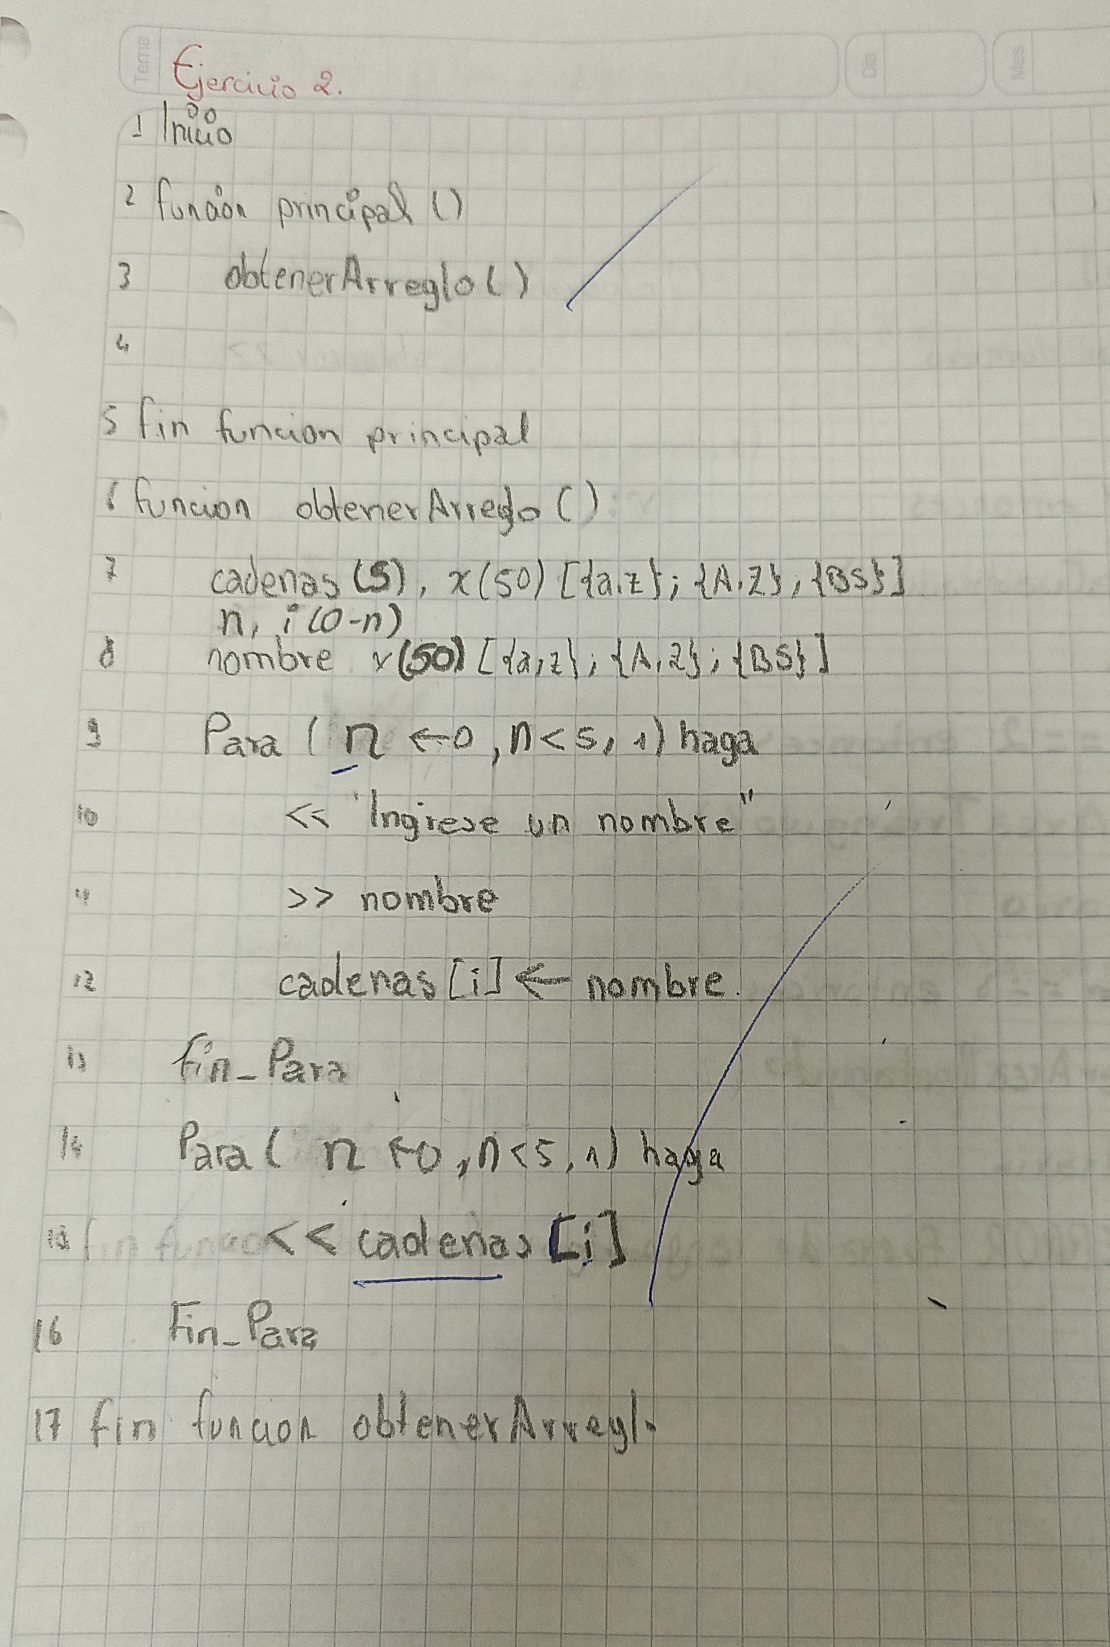 Tema
Dia
Mes
Ejercicio 2.
1 Inicio
2 funcion principal ()
3 obtenerArreglo()
4
5 fin funcion principal
6 funcion obtenerArreglo ()
7 cadenas (5), x(50) [{a.z}; {A.Z}, {BS}]
n, i (0-n)
8 nombre x(50) [{a,z}; {A,Z}; {BS}]
9 Para ( n ← 0, n < 5, 1) haga
10 << "Ingrese un nombre"
11 >> nombre
12 cadenas [i] ← nombre.
13 fin_Para
14 Para ( n ← 0, n < 5, 1) haga
15 << cadenas [i]
16 Fin_Para
17 fin funcion obtenerArreglo